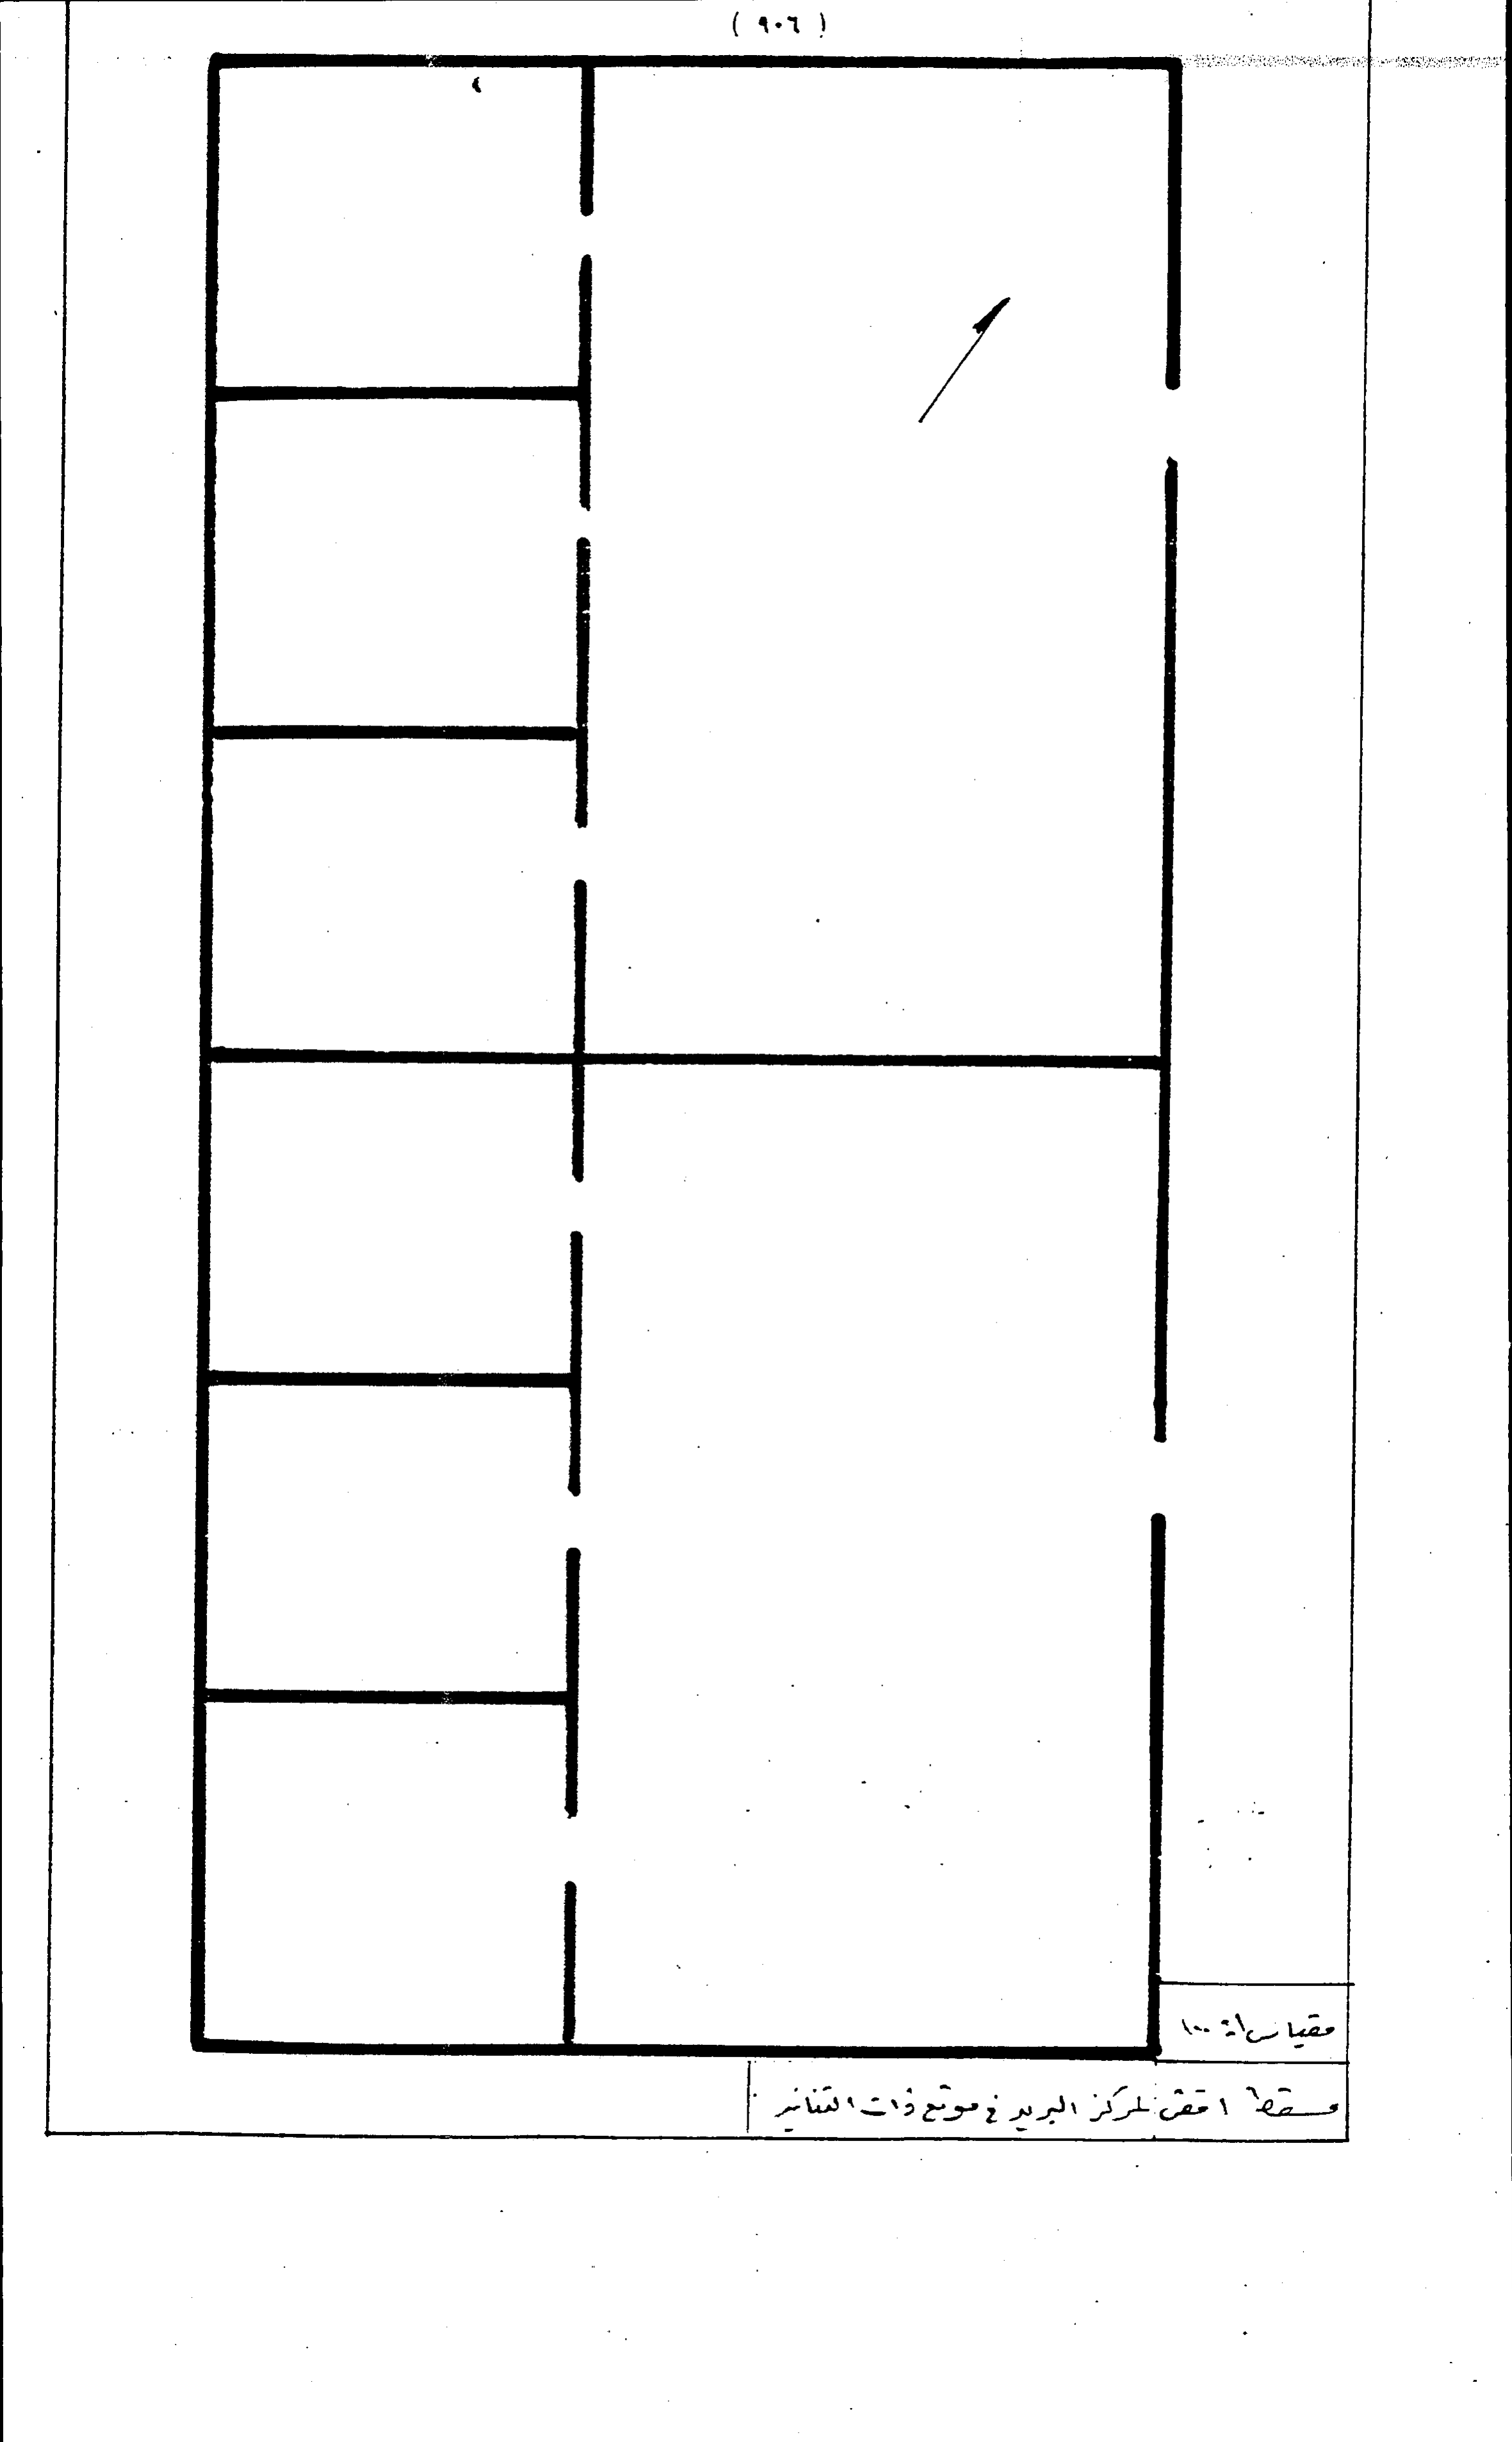 ( ٩٠٦ )
مقياس ١: ١٠٠
مسقط افقى لمركز البريد في موقع ذات التنانير